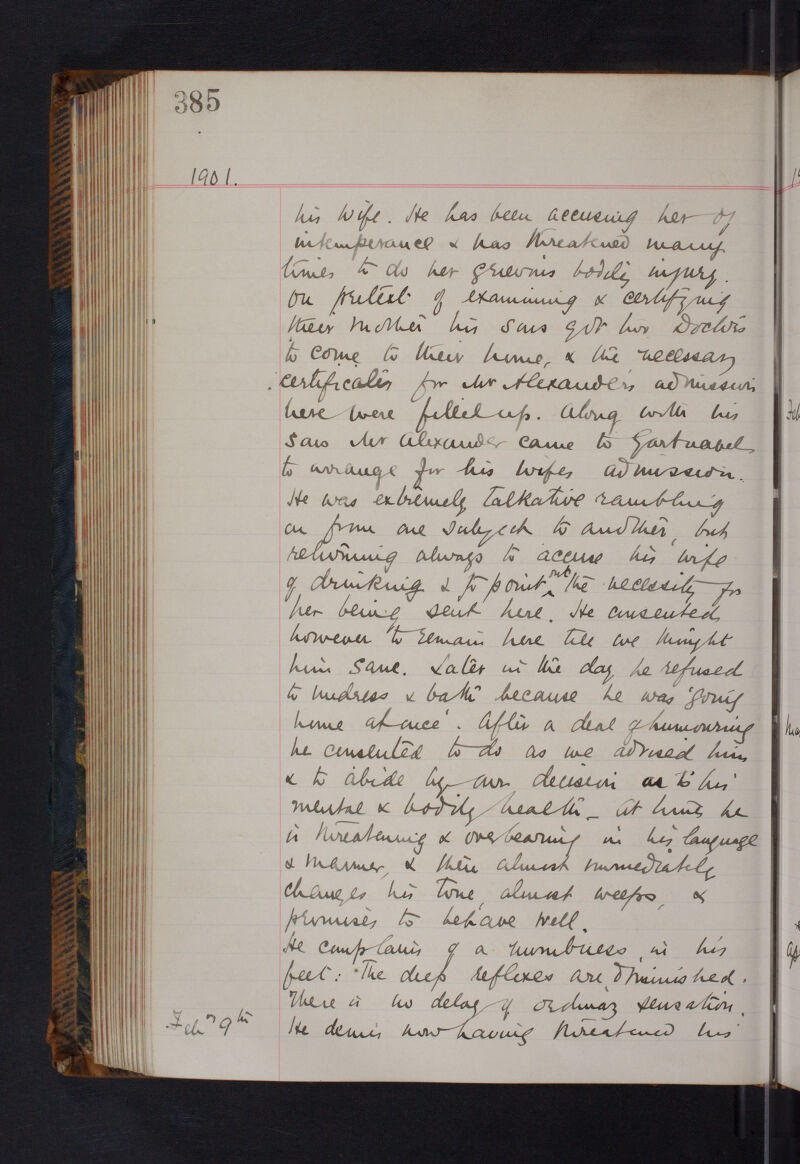 385
1901.
his wife. He has been accusing her of
intemperance & has threatened many
times to do her grievous bodily injury.
On pretext of examining & certifying
their mother his sons got two Doctors
to come to their home, & the necessary
certificates for Mr Alexander's admission
here were filled up. Along with his
sons Mr Alexander came to Gartnavel
to arrange for his wifes admission.
He was extremely talkative rambling
on from one subject to another, but
returning always to accuse his wife
of drinking & to point out the necessity for
her being sent here. He consented
however to remain here till we thought
him sane. Later in the day he refused
to undress & bathe because he was 'going
home at once'. After a deal of humouring
he consented to do as we advised him
& to abide by our decision as to his
mental & bodily health _ At times he
is threatening & overbearing in his language
& manner, & then almost immediately
changes his tone, almost weeps, &
promises to behave well.
He complains of a numbness in his
feet: The deep reflexes are diminished.
There is no delay of ordinary sensation.
Febry 9th He denies now having threatened his